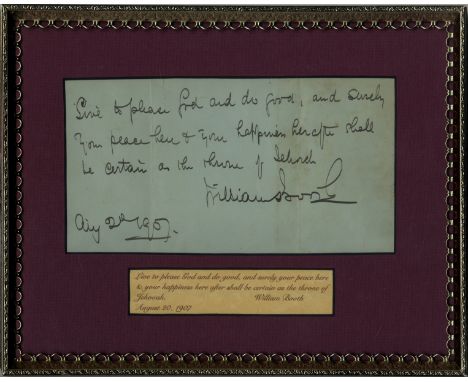 Live to please God and do good, and surely
your peace here & your happiness hereafter shall
be certain as the throne of Jehovah
William Booth
Aug 20 1907.
Live to please God and do good, and surely your peace here
& your happiness here after shall be certain as the throne of
Jehovah. William Booth
August 20, 1907